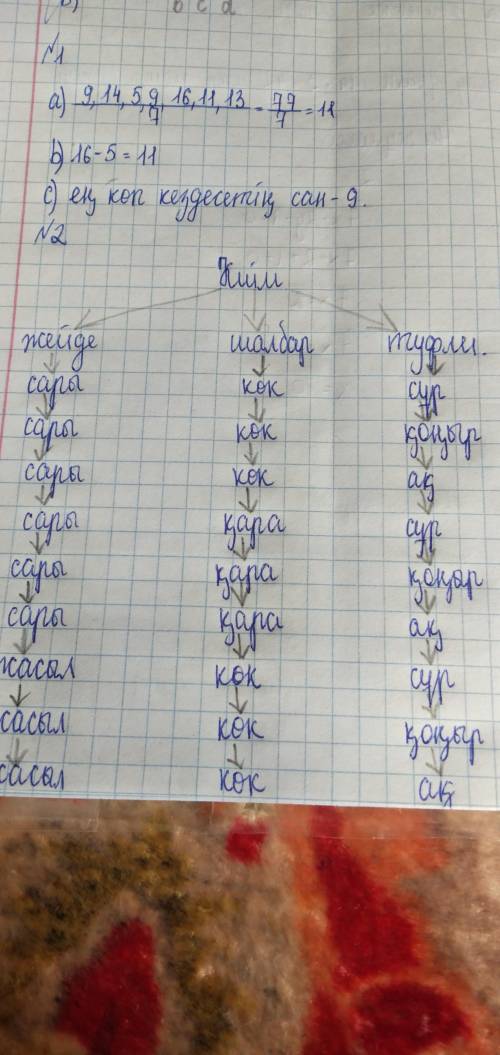 b c d
№1
а) 9, 14, 5, 9, 16, 11, 13 / 7 = 77 / 7 = 11
b) 16 - 5 = 11
c) ең көп кездесетің сан - 9.
№2
Киім
жейде шалбар туфли.
сары көк сұр
сары көк қоңыр
сары көк ақ
сары қара сұр
сары қара қоңыр
сары қара ақ
жасыл көк сұр
жасыл көк қоңыр
жасыл көк ақ